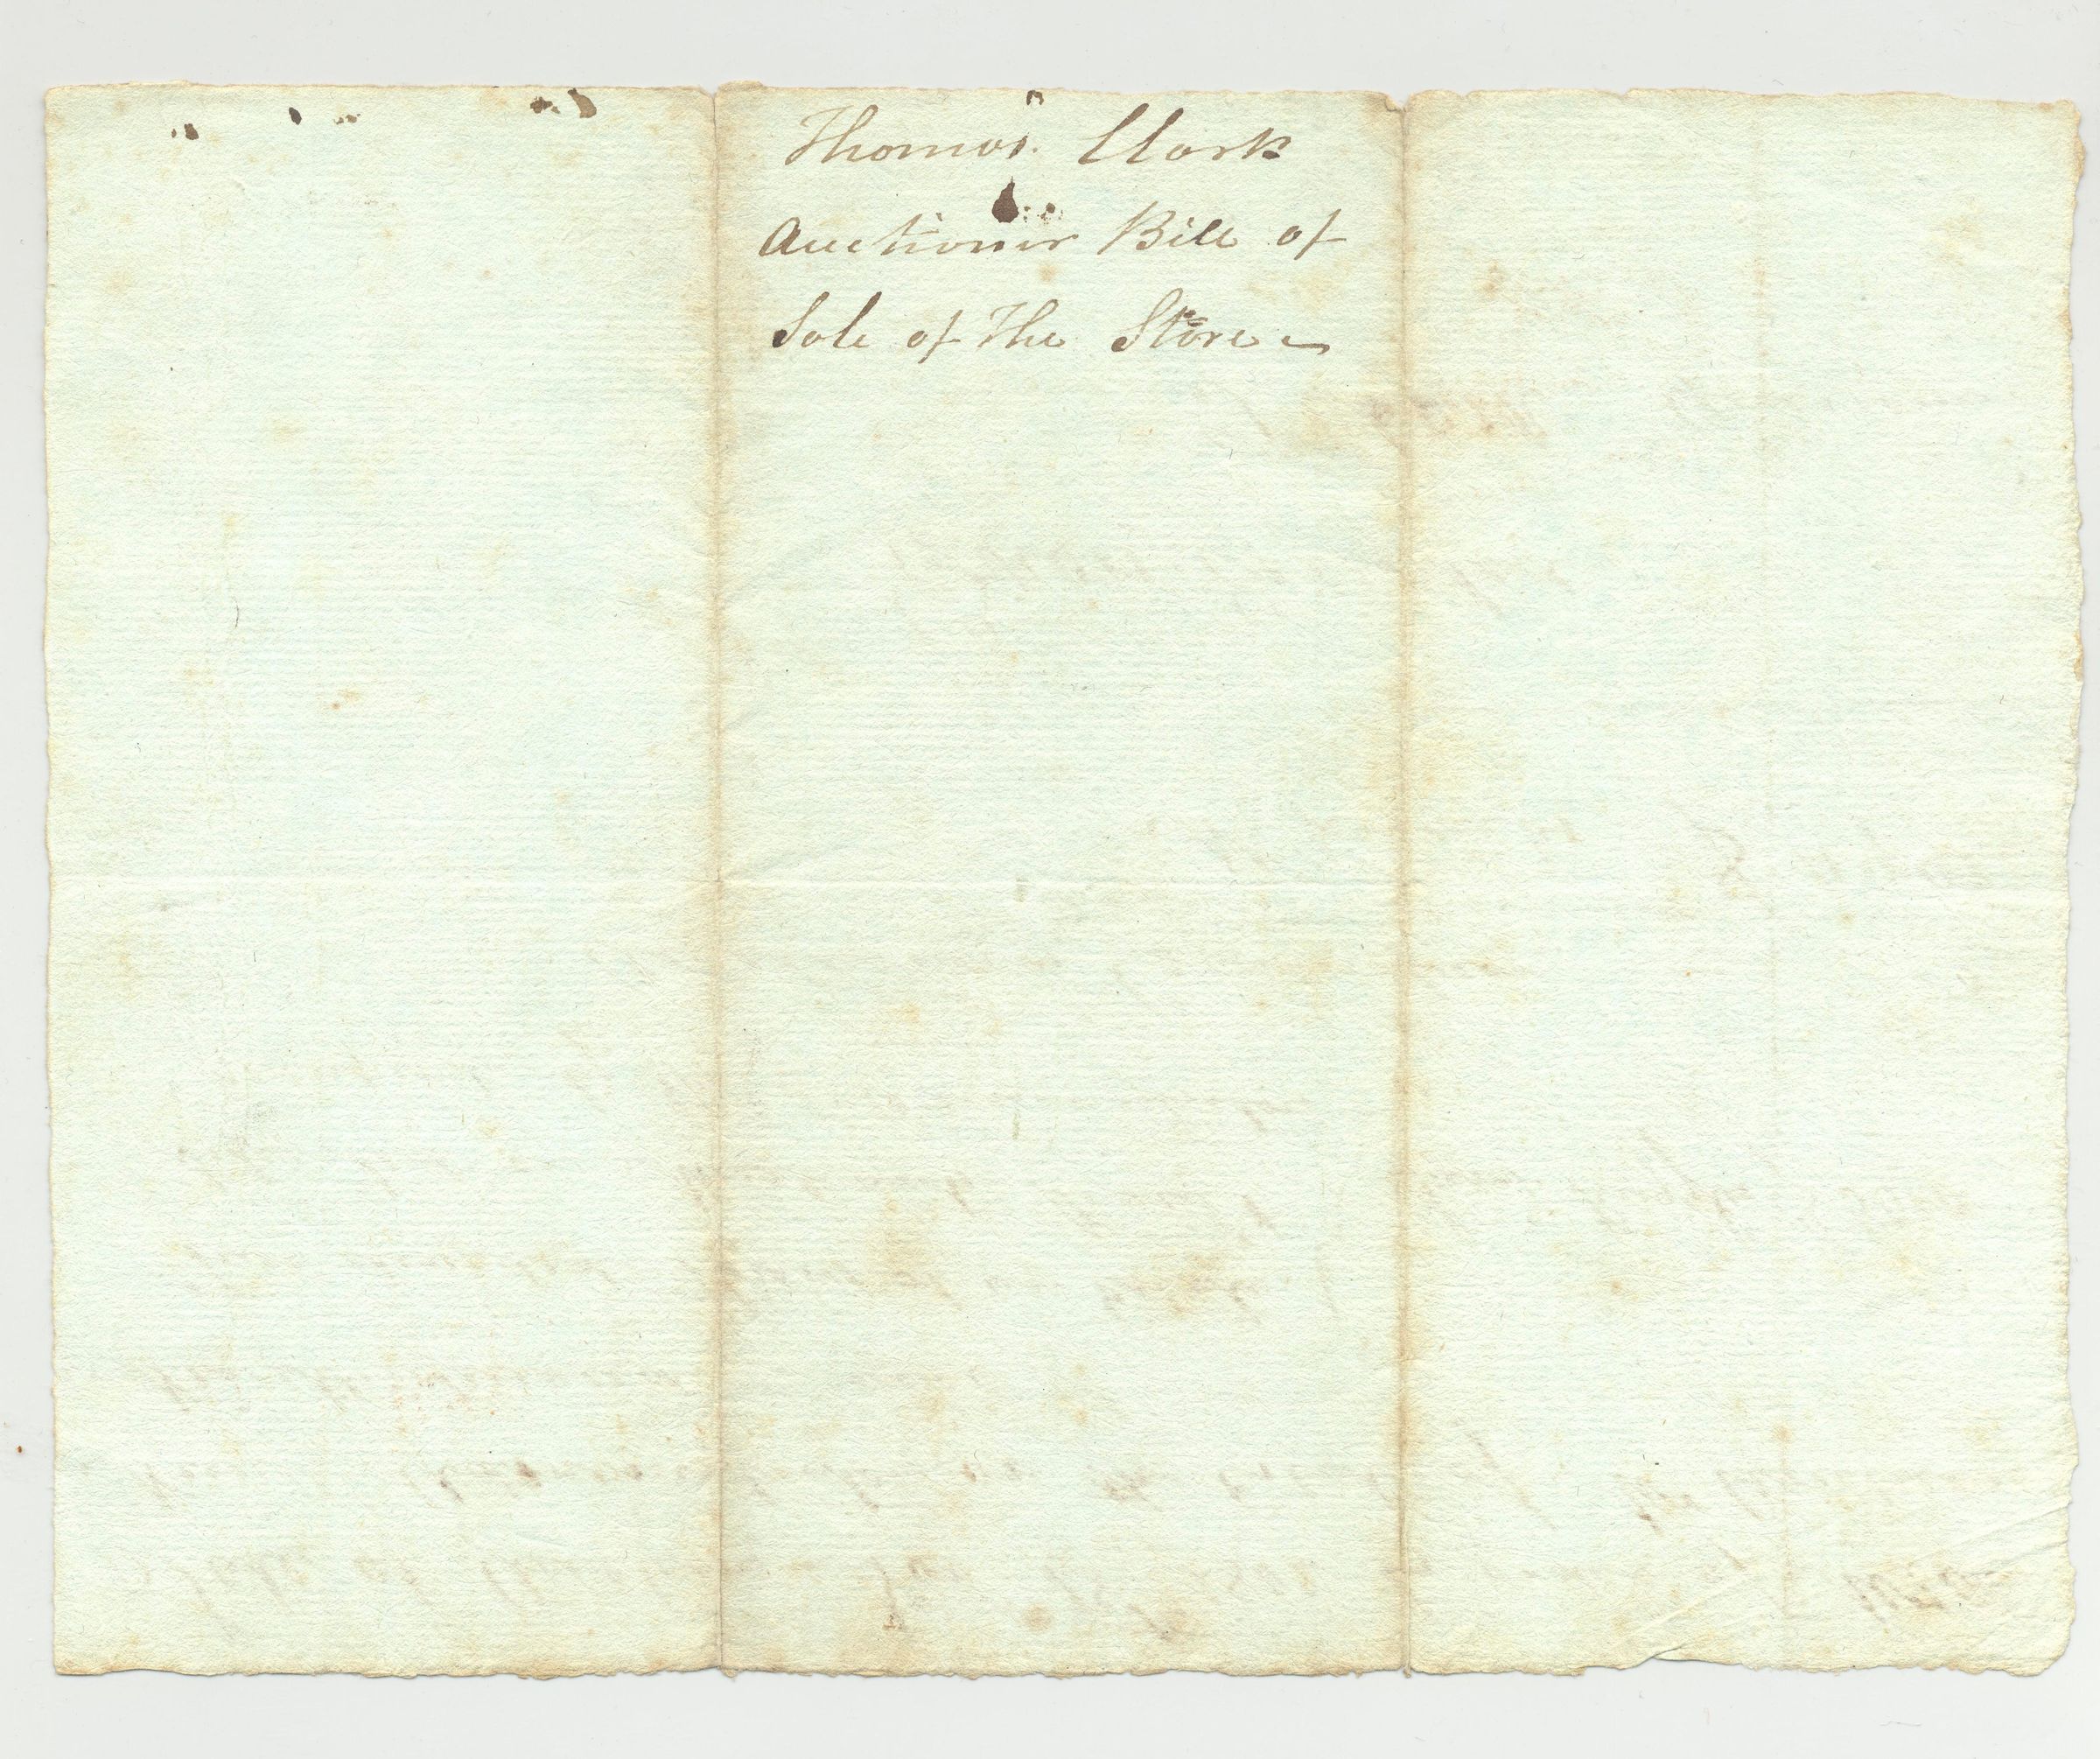 Thomas Clark
Auctioner Bill of
Sale of the Store